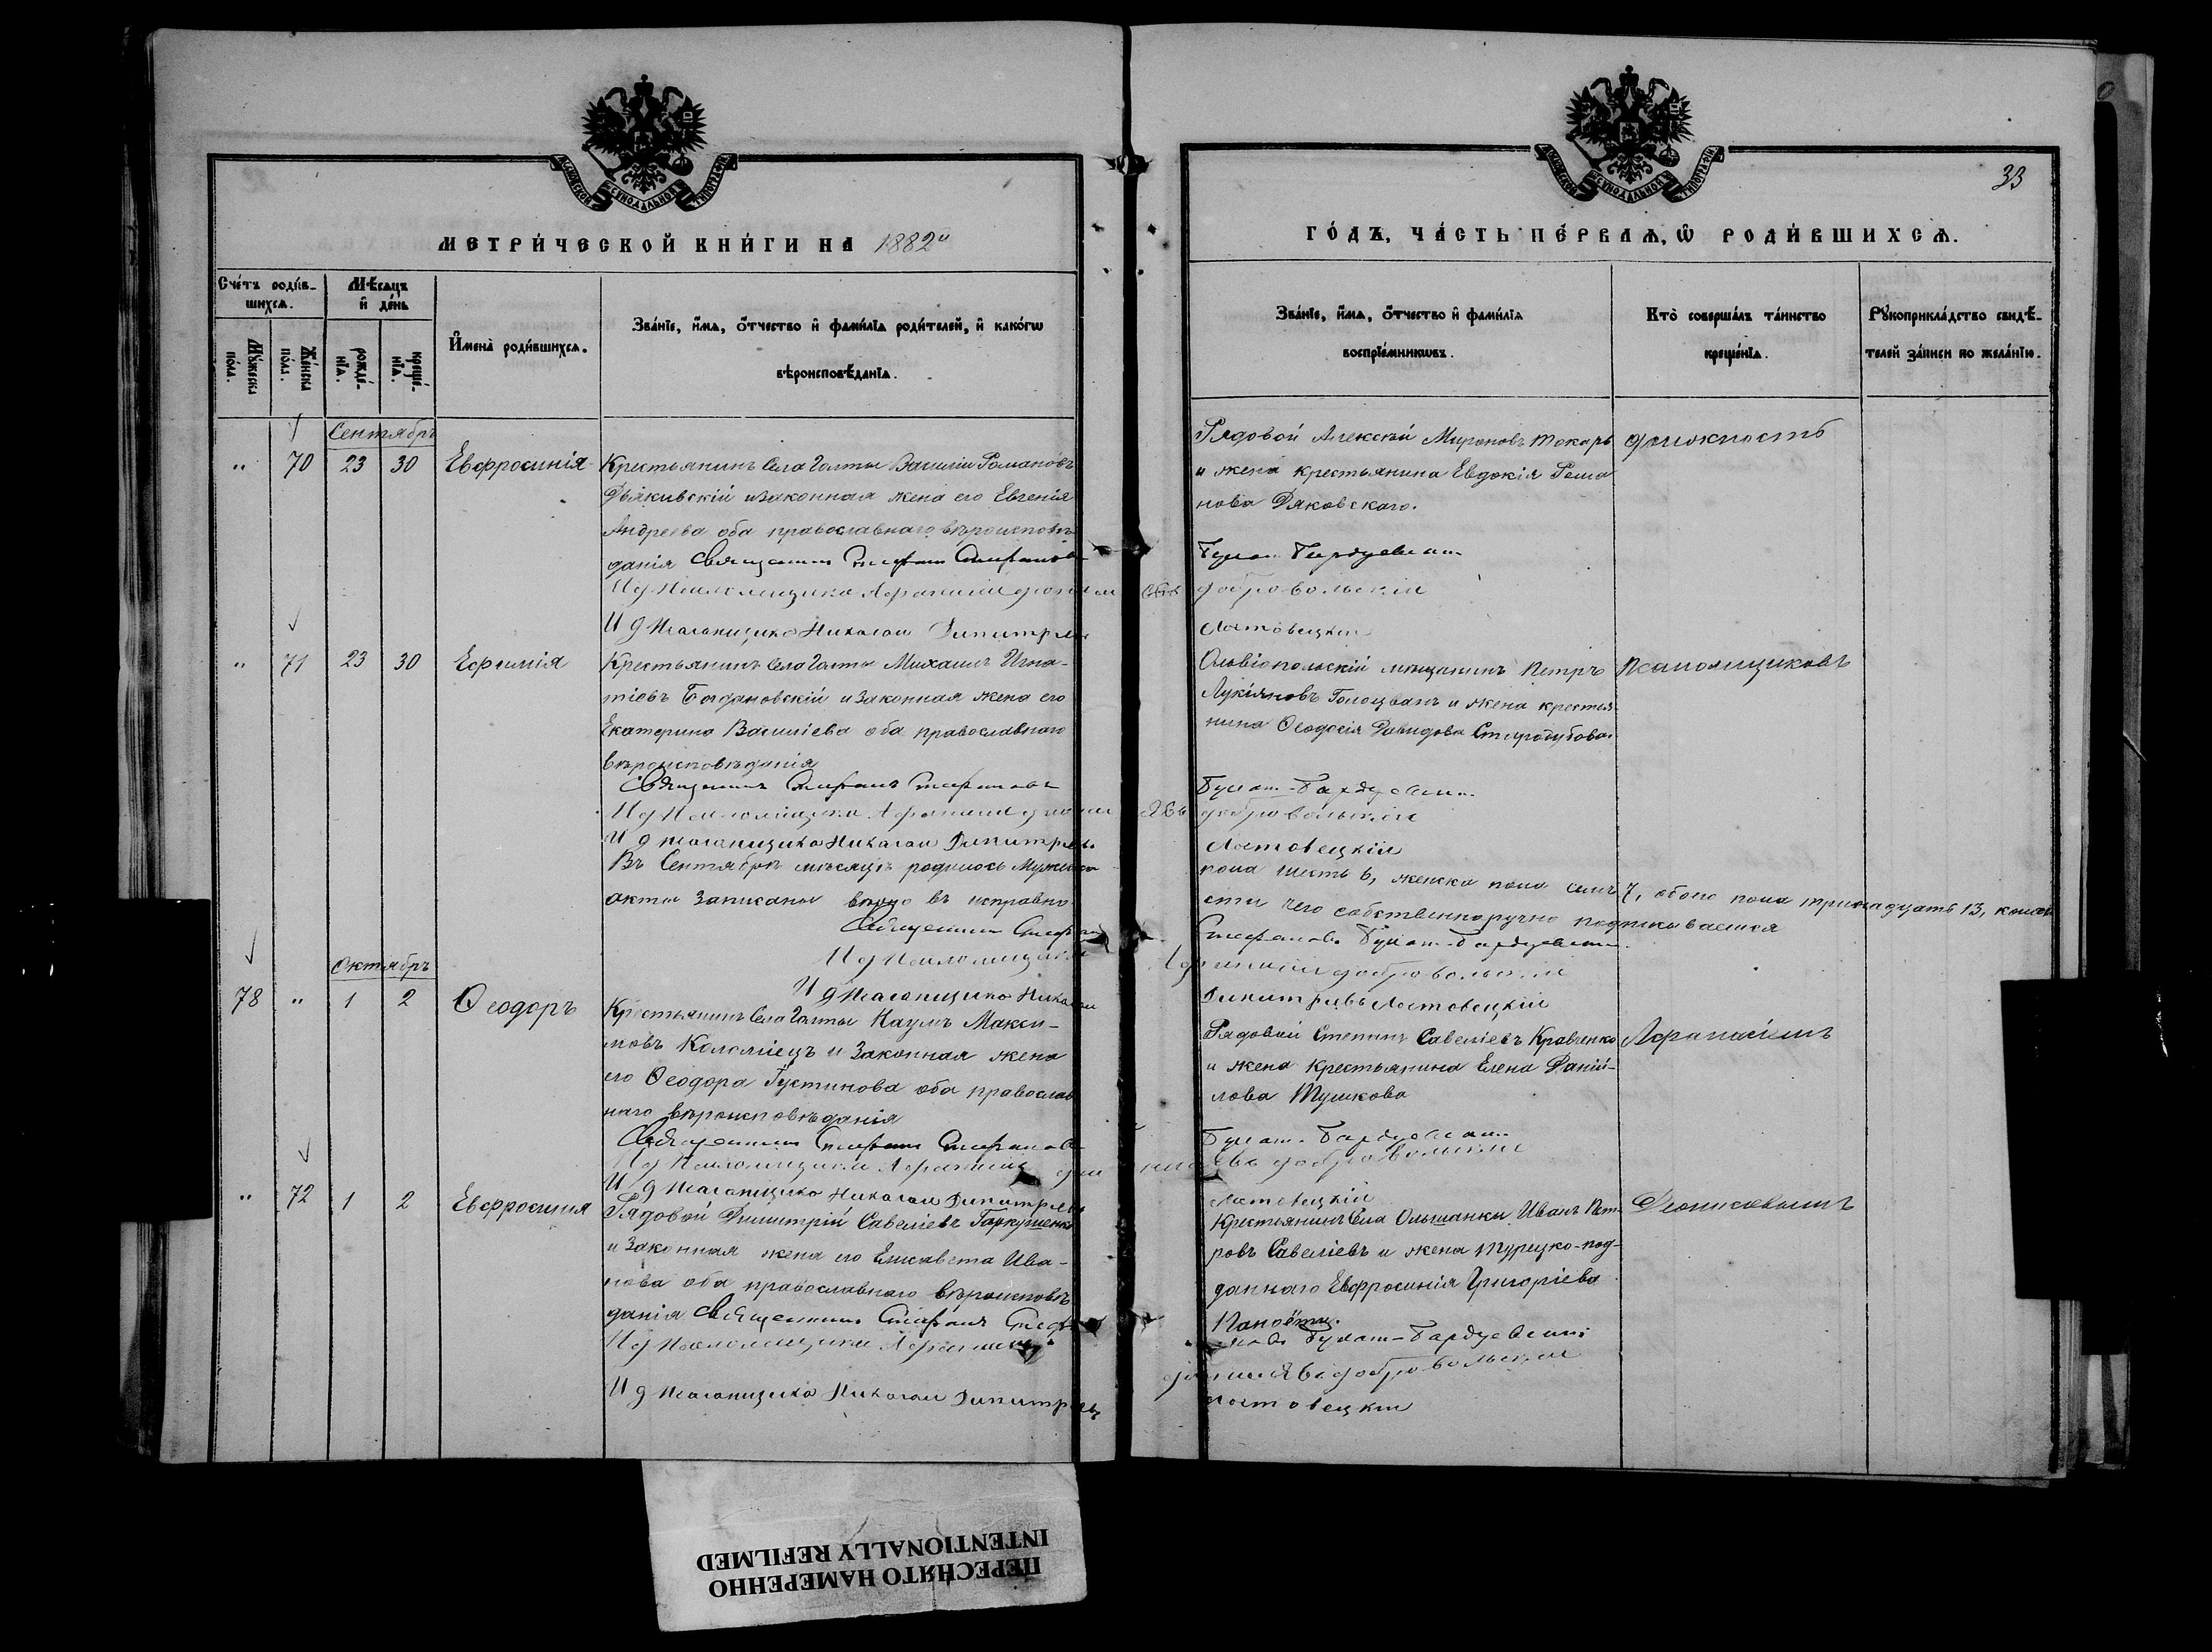 МОСКОВСКОЙ СѴНОДАЛЬНОЙ ТИПОГРАФІИ
МЕТРИ́ЧЕСКОЙ КНИ́ГИ НА 1882й
Сче́тъ роди́в-
шихсѧ.
Мѣ́сѧцъ
и҆ де́нь
Мꙋ́жеска
по́ла.
Же́нска
по́ла.
рожде́-
нїѧ.
креще́-
нїѧ.
И҆мена̀ роди́вшихсѧ.
Зва́нїе, и҆́мѧ, ѻ҆́тчество и҆ фами́лїѧ роди́телей, и҆ како́гѡ
вѣроисповѣ́данїѧ.
Сентябрь
" 70 23 30 Евфросинія
Крестьянинъ села Голты Василій Романовъ
Дьяківскій и законная жена его Евгенія
Андреева оба православнаго вѣроисповѣ-
данія Священникъ Стефанъ Стефановъ
И д Псаломщика Афанасій
И д Псаломщика Николай Димитріевъ
" 71 23 30 Ефимія
Крестьянинъ села Голты Михаилъ Игна-
тіевъ Богдановскій и законная жена его
Екатерина Василіева оба православнаго
вѣроисповѣданія
Священникъ Стефанъ Стефановъ
И д Псаломщика Афанасій
И д Псаломщика Николай Димитріевъ
Въ Сентябрѣ мѣсяцѣ родилось мужеска
акты записаны вѣрно въ исправно
Священникъ Стефанъ
И д Псаломщика
И д Псаломщика Николай
Октябрь
78 " 1 2 Ѳеодоръ
Крестьянинъ села Голты Наумъ Макси-
мовъ Коломіецъ и законная жена
его Ѳеодора Густинова оба православ
наго вѣроисповѣданія
Священникъ Стефанъ Стефановъ
И д Псаломщика Афанасій
И д Псаломщика Николай Димитріевъ
" 72 1 2 Евфросинія
Рядовой Димитрій Савеліевъ Гаркушенко
и законная жена его Елисавета Ива-
нова оба православнаго вѣроисповѣ-
данія Священникъ Стефанъ
И д Псаломщика Афанасій
И д Псаломщика Николай Димитріевъ
33
МОСКОВСКОЙ СѴНОДАЛЬНОЙ ТИПОГРАФІИ
ГО́ДЪ, ЧА́СТЬ ПЕ́РВАѦ, Ѡ҆ РОДИ́ВШИХСѦ.
Зва́нїе, и҆́мѧ, ѻ҆́тчество и҆ фами́лїѧ
воспрїе́мникѡвъ.
Кто̀ соверша́лъ та́инство
креще́нїѧ.
Рꙋкоприкла́дство свидѣ́-
телей за́писи по жела́нїю.
Рядовой Алексѣй Мироновъ Токарь
и жена крестьянина Евдокія Рома
нова Дяковскаго.
должность
Булат-Бардусевич
Добровольскій
Лотовецкій
Ольвіопольскій мѣщанинъ Петръ
Лукіяновъ Голоцванъ и жена крестья
нина Ѳеодосія Давидова Стародубова.
Псаломщиковъ
Булат-Бардусевич
Добровольскій
Лотовецкій
пола шесть 6, женска пола семь 7, обоего пола тринадцать 13,
сти чего собственноручно подписываемся
Стефановъ Булат-Бардусевич
Добровольскій
Димитріевъ Лотовецкій
Рядовой Степанъ Савеліевъ Кравченко
и жена крестьянина Елена Даній-
лова Тушкова
Афанасіемъ
Булат-Бардусевич
Добровольскій
Лотовецкій
Крестьянинъ села Ольшанки Иванъ Пет-
ровъ Савеліевъ и жена турецко-под-
даннаго Евфросинія Григоріева
Діонисіевымъ
Булат-Бардусевич
Добровольскій
Лотовецкій
ПЕРЕСНЯТО НАМЕРЕННО
INTENTIONALLY REFILMED